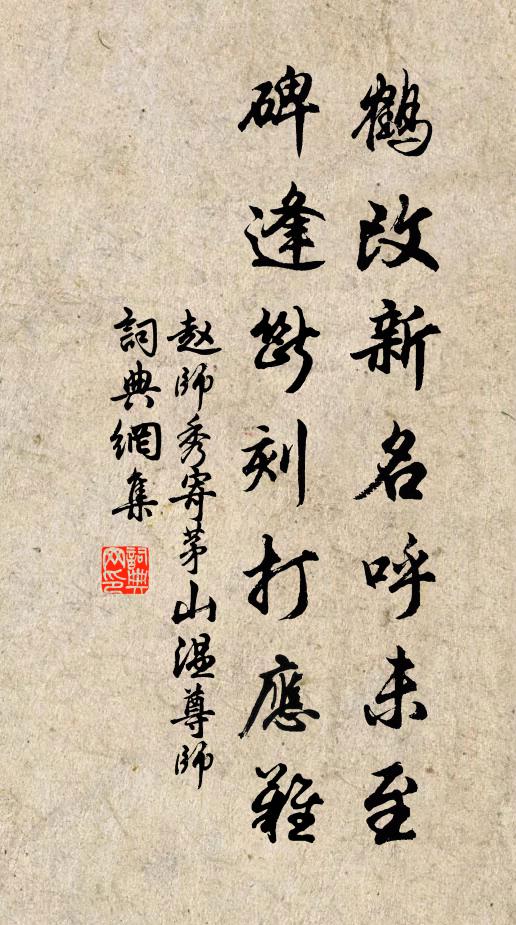 鶴改新名呼未至
碑逢斷刻打應難
赵師秀寄茅山温尊師
詞典網集
詞典
网印